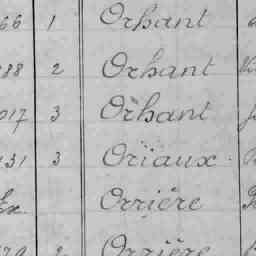 66 1 Orhant
88 2 Orhant
017 3 Orhant
131 3 Oriaux
Ex. Orrière
2 Orrière